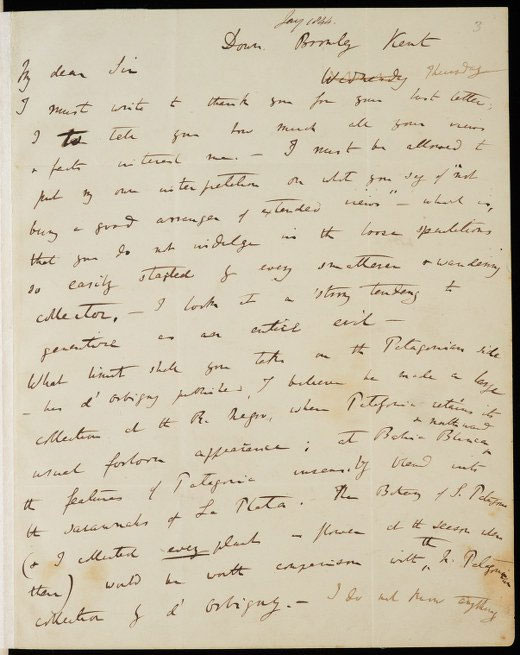 Jany 1844.
3
Down. Bromley Kent
My dear Sir
Wednesday Thursday
I must write to thank you for your last letter;
I to tell you how much all your views
& facts interest me. — I must be allowed to
put my own interpretation on what you say of "not
being a good arranger of extended views" — which is,
that you do not indulge in the loose speculations
so easily started by every smatterer & wandering
collector. — I look at a strong tendency to
generalise as an entire evil —
What limit shall you take on the Patagonian side
— has d'Orbigny published, I believe he made a large
collection at the R. Negro, where Patagonia retains its
usual forlorn appearance; at Bahia Blanca
& northward
the features of Patagonia insensibly blend into
the savannahs of La Plata. The Botany of S. Patagonia
(& I collected every plant in flower at the season when
there) would be worth comparison with the N. Patagonian
collection by d'Orbigny. — I do not know anything